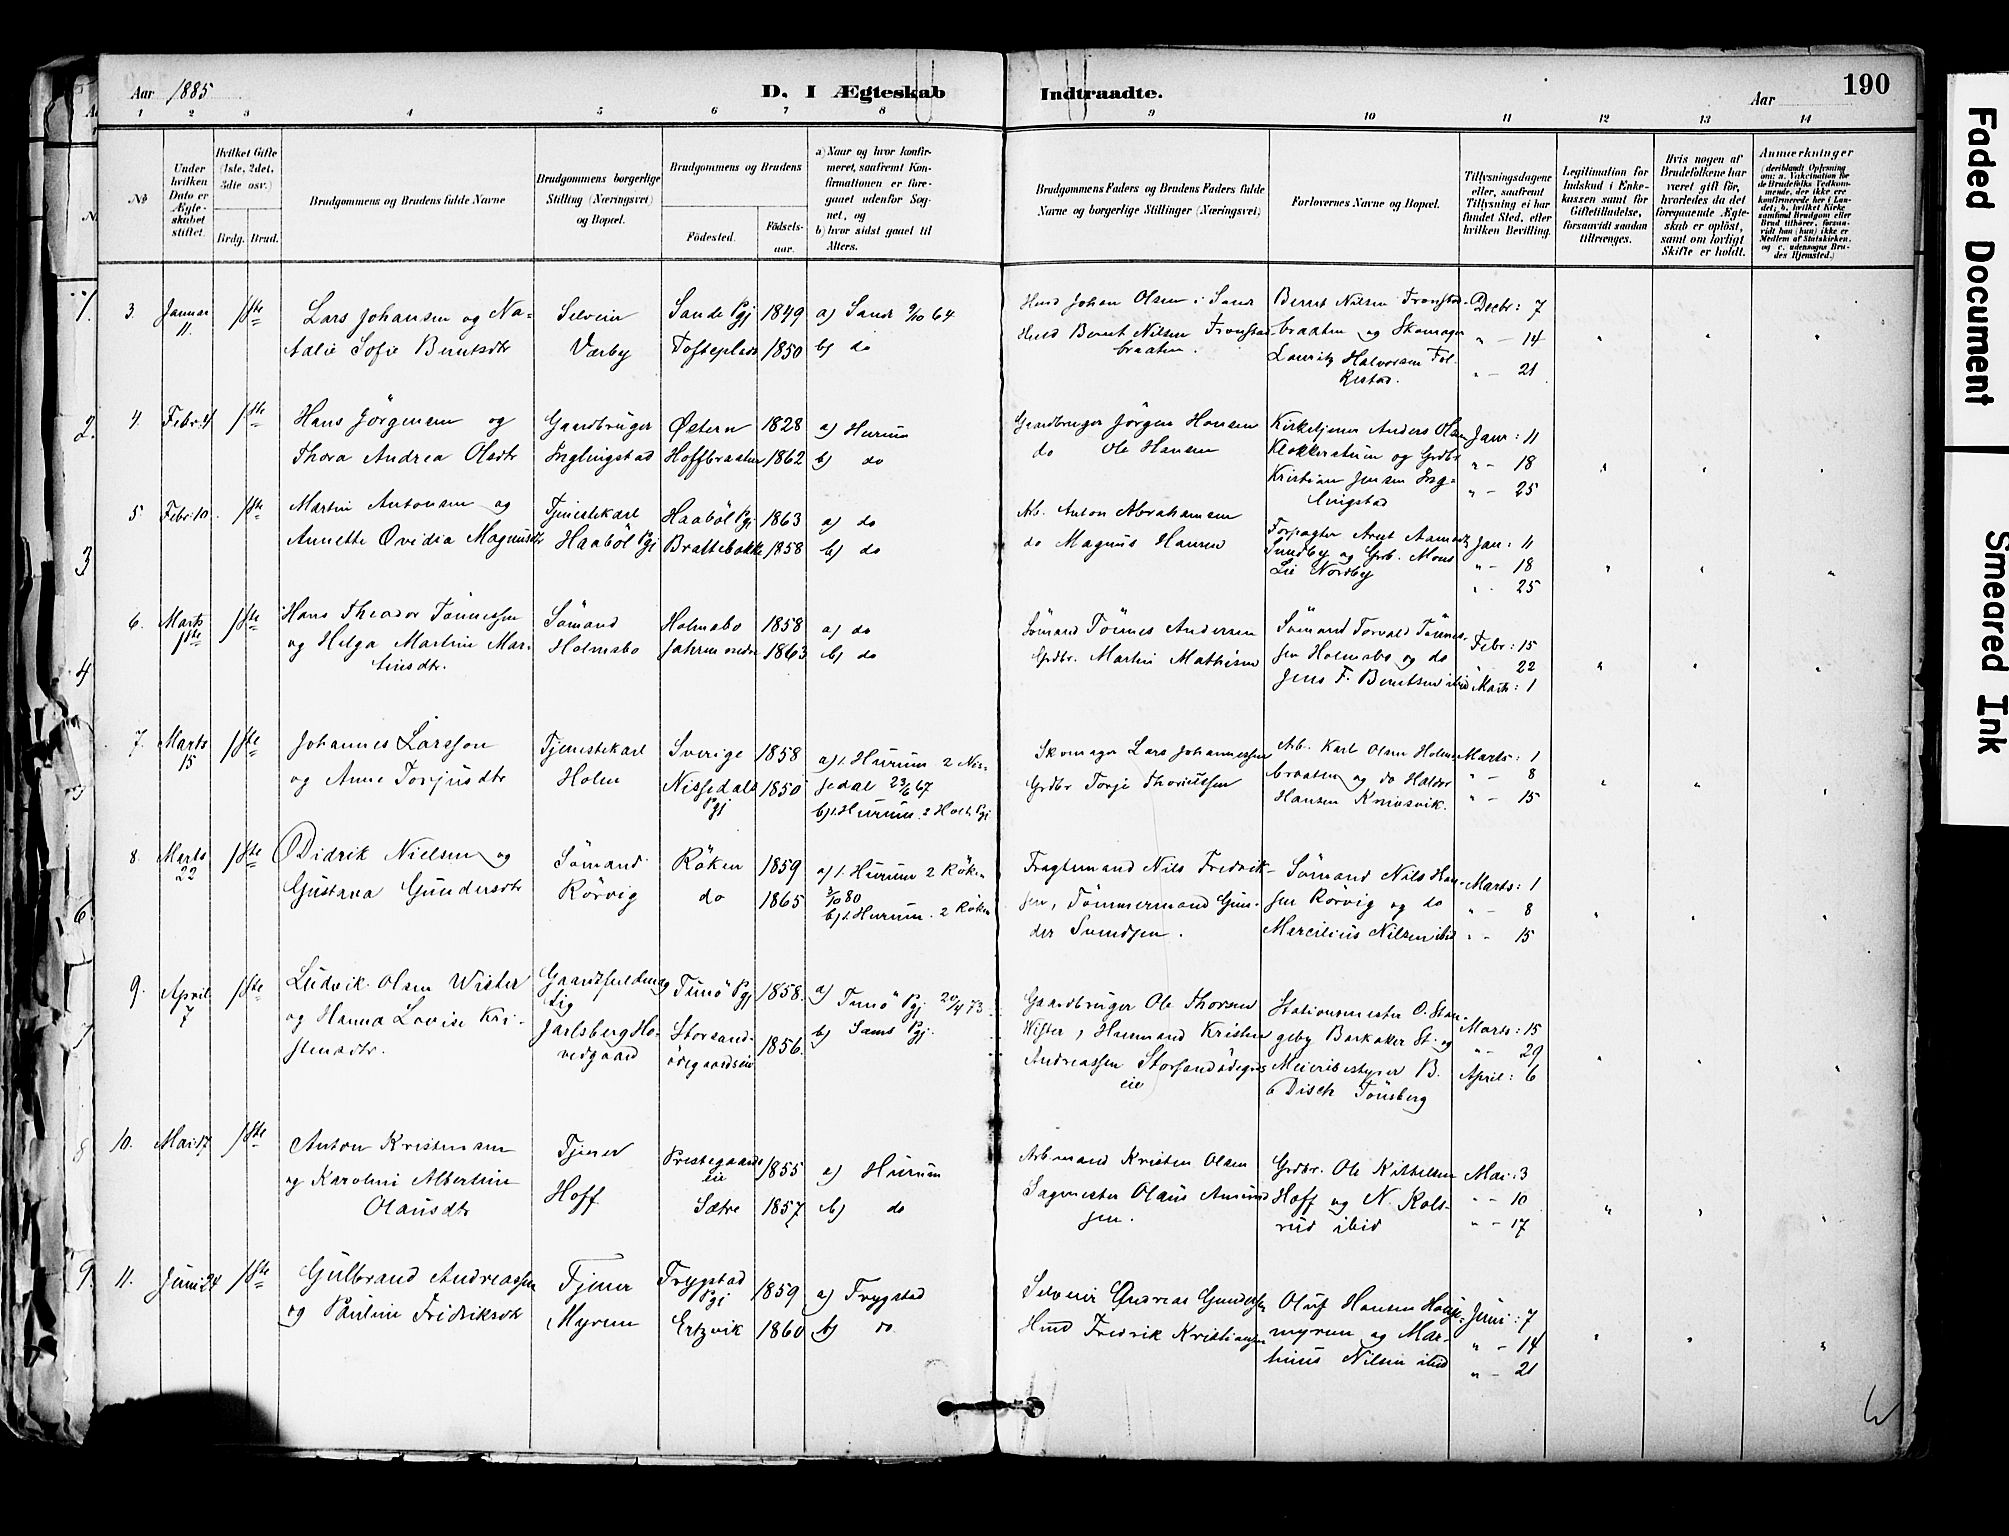 Aar 1885
D. I Ægteskab
Indtraadte.
Aar
190
1 2 3 4 5 6 7 8 9 10 11 12 13 14
No
Under hvilken Dato er Ægteskabet stiftet.
Hvilket Gifte (1ste, 2det, 3die osv.)
Brdg. Brud.
Brudgommens og Brudens fulde Navne
Brudgommens borgerlige Stilling (Næringsvei) og Bopæl.
Brudgommens og Brudens
Fødested.
Fødselsaar.
a) Naar og hvor konfirmeret, saafremt Konfirmationen er foregaaet udenfor Sognet, og
b) hvor sidst gaaet til Alters.
Brudgommens Faders og Brudens Faders fulde Navne og borgerlige Stillinger (Næringsvei)
Forlovernes Navne og Bopæl.
Tillysningsdagene eller, saafremt Tillysning ei har fundet Sted, efter hvilken Bevilling.
Legitimation for Indskud i Enkekassen samt for Giftetilladelse, forsaavidt saadan tiltrænges.
Hvis nogen af Brudefolkene har været gift før, hvorledes da det foregaaende Ægteskab er opløst, samt om lovligt Skifte er holdt.
Anmærkninger
(deriblandt Oplysning om: a. Vakcination for de Brudefolks Vedkommende, der ikke ere konfirmerede her i Landet; b. hvilket Kirkesamfund Brudgom eller Brud tilhører, forsaavidt han (hun) ikke er Medlem af Statskirken, og c. udensogns Brudes Hjemsted.)
3. Januar 11. 1ste
Lars Johansen og Na-
talie Sofie Berntsdtr
Selveier
Værby
Sande Pgj 1849
Tofteplads 1850
a) Sande 9/10 64
b) do
Husd Johan Olsen i Sande
Husd Bernt Nilsen Tronstad
braaten.
Bernt Nilsen Tronstad-
braaten og Skomager
Lauritz Halvorsen Fol-
kestad.
Decbr: 7
" - 14
" - 21
4. Febr: 4 1ste
Hans Jörgensen og
Thora Andrea Olsdtr
Gaardbruger
Inglingstad
Østern 1828
Hoffbraaten 1862
a) Hurum
b) do
Gaardbruger Jörgen Hansen
do Ole Hansen
Kirketjener Anders Olsen
Klokkerstuen og Grdbr
Kristian Jensen Ing-
lingstad
Janr: 11
" - 18
" - 25
5. Febr: 10. 1ste
Martin Antonsen og
Annette Ovidia Magnusdtr
Tjenestekarl
Haaböl Pgj
Haaböl Pgj 1863
Brattebakke 1858
a) do
b) do
Arb. Anton Abrahamsen
do Magnus Hansen
Forpagter Arnt Aamodt
Sundby og Grb. Mons
Lie Nordby
Jan: 11
" - 18
" - 25
6. Marts 1ste 1ste
Hans Theodor Tönnessen
og Helga Martine Mar-
tinsdtr.
Sömand
Holmsbo
Holmsbo 1858
Jahren nedre 1863
a) do
b) do
Sömand Tönnes Andersen
Grdbr. Martin Mathisen
Sömand Torvald Tönnes-
sen Holmsbo og do
Jens F. Berntsen ibid
Febr: 15
" 22
Marts: 1
7. Marts 15 1ste
Johannes Larsson
og Anne Torjusdtr
Tjenestekarl
Holm
Sverige 1858
Nissedals Pgj 1850
a) 1. Hurum 2 Nis-
sedal 23/6 67
b) 1. Hurum. 2 Holts Pgj
Skomager Lars Johannessen
Grdbr Torje Thoriussen
Arb. Karl Olsen Holms-
braaten og do Haldor
Hansen Knivsvik.
Marts: 1
" - 8
" - 15
8. Marts 22 1ste
Didrik Nielsen og
Gustava Gundersdtr
Sömand
Rörvig
Röken 1859
do 1865
a) 1. Hurum 2 Röken
3/10 80
b) 1. Hurum. 2 Röken
Fragtemand Nils Fredrik-
sen, Tömmermand Gun-
der Svendsen.
Sömand Nils Han-
sen Rörvig og do
Mercilius Nilsen ibid
Marts: 1
" - 8
" - 15
9. April 7 1ste
Ludvik Olsen Wister
og Hanna Lovise Kri-
stensdtr.
Gaardsfuldmæg
tig
Jarlsberg Ho-
vedgaard
Timö Pgj 1858.
Storsand-
ödegaardseie 1856.
a) Timö Pgj 20/4 73.
b) Sams Pgj.
Gaardbruger Ole Thorsen
Wister, Huusmand Kristen
Andreassen Storsandödegrds
eie
Stationsmester O. Stan-
geby Barkaker St. og
Meieribestyrer B.
Disch Tönsberg
Marts: 15
" - 29
April: 6
10. Mai 17 1ste
Anton Kristensen
og Karoline Albertine
Olausdtr
Tjener
Hoff
Prestegaards
eie 1855
Sætre 1857
a) Hurum
b) do
Arbmand Kristen Olsen
Sagmester Olaus Amund
sen.
Grdbr. Ole Kittelsen
Hoff og N. Kols-
rud ibid
Mai: 3
" - 10
" - 17
11. Juni 24 1ste
Gulbrand Andreassen
og Pauline Fredriksdtr
Tjener
Myrene
Trygstad
Pgj 1859
Ertzvik 1860
a) Trygstad
b) do
Selveier Andreas Gundersen
Husd Fredrik Kristiansen
Oluf Hansen Hauge-
myren og Mar-
tinius Nilsen ibid
Juni: 7
" - 14
" - 21
1.
2.
3
4
5
6
7
8
9.
Faded Document
Smeared Ink